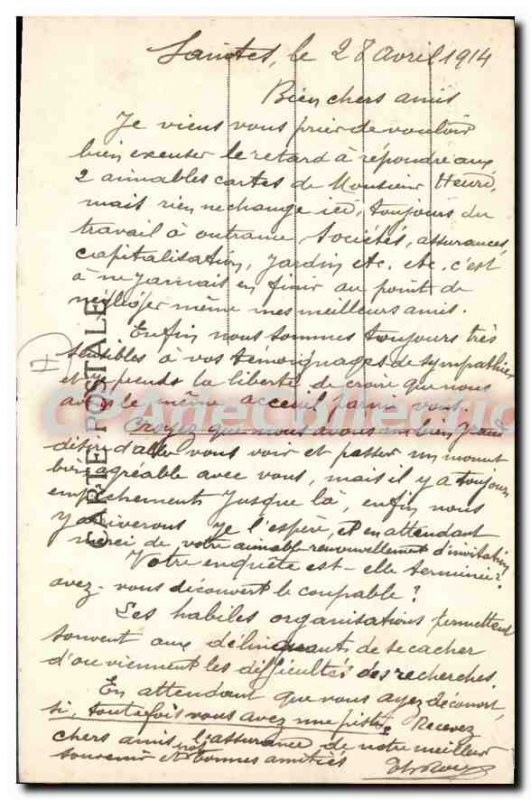 Saintes, le 28 avril 1914
Bien chers amis
Je viens vous prier de vouloir
bien excuser le retard à répondre aux
2 aimables cartes de Monsieur Henri,
mais rien ne change ici, toujours du
travail à outrance Sociétés, assurances,
capitalisation, Jardin etc. etc. c'est
à ne jamais en finir au point de
négliger même mes meilleurs amis.
Enfin nous sommes toujours très
sensibles à vos témoignages de sympathies
et prends la liberté de croire que nous
avons le même acceuil parmi vous.
Croyez que nous avons un bien grand
désir d'aller vous voir et passer un moment
bien agréable avec vous, mais il y a toujours
empêchements jusque là, enfin nous
y arriverons je l'espère, et en attendant
merci de votre aimable renouvellement d'invitation
Votre enquête est-elle terminée?
avez-vous découvert le coupable?
Les habiles organisations permettent
souvent aux délinquants de se cacher
d'ou viennent les difficultés des recherches.
En attendant que vous ayez découvert,
si, toutefois vous avez une piste, Recevez
chers amis, l'assurance de notre meilleur
souvenir et nos bonnes amitiés
CARTE POSTALE
CPArteCollection